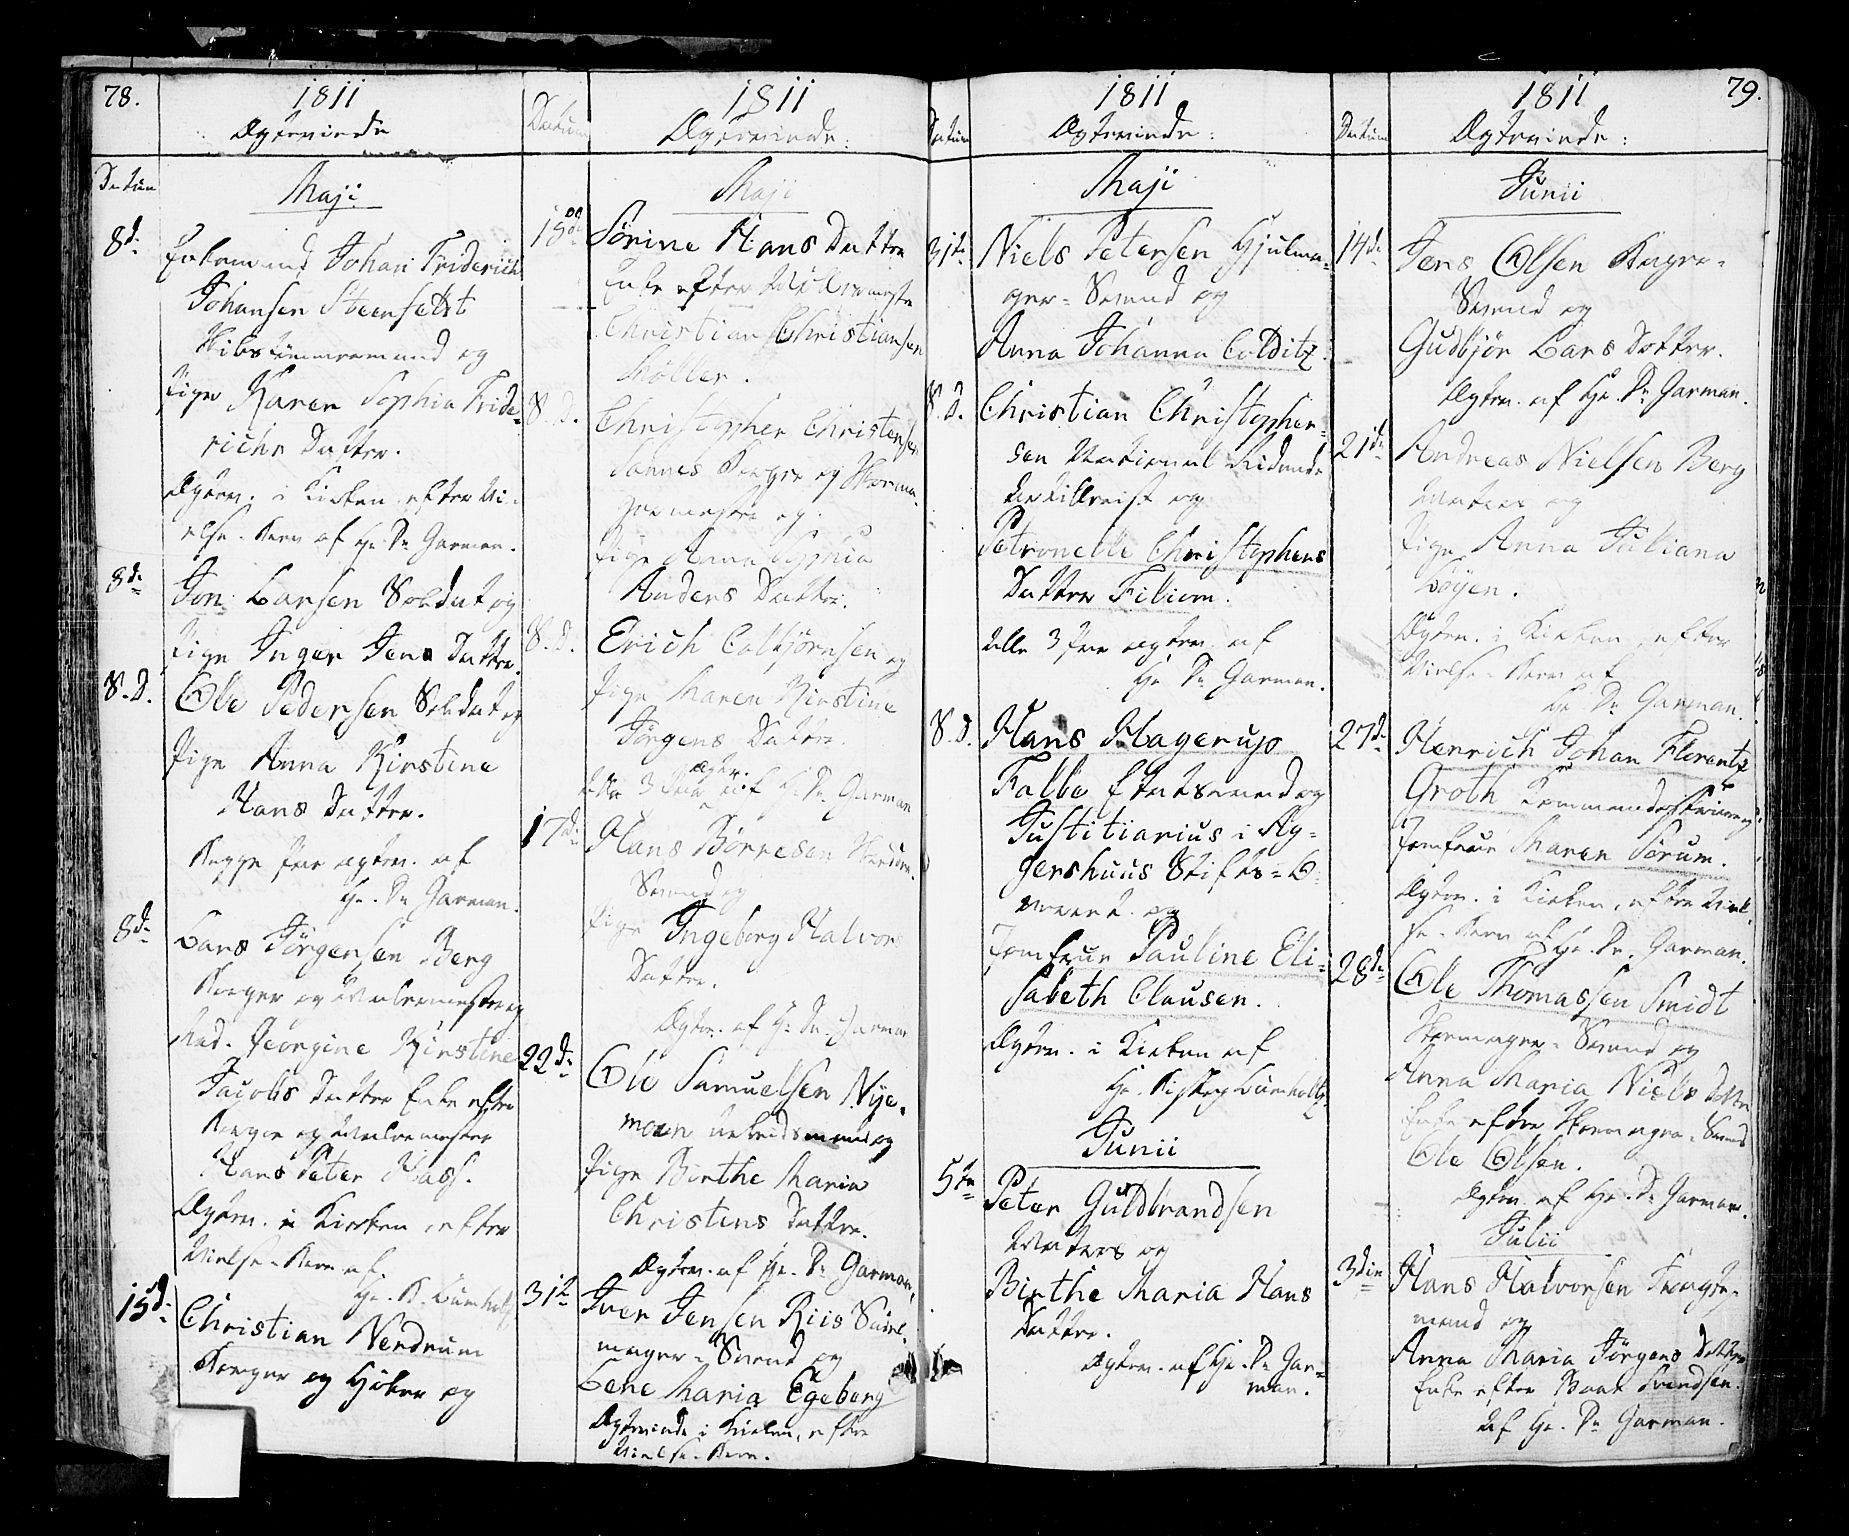 78.
1811
Ægteviede
Datum
Maji
8d:
Enkemand Johan Friderich
Johansen Steensedt
Skibstømmermand og
Pige Karen Sophia Fride-
richs Datter.
Ægtev. i Kirken efter Vi-
else-Brev af Hr. Dn Garman.
8de
Jon Larsen Soldat og
Pige Inger Jens Datter.
S.D.
Ole Pedersen Soldat og
Pige Anna Kirstine
Hans Datter.
Begge Par ægtev. af
Hr. Dn Garman.
8de
Lars Jörgensen Berg
Borger og
Mad. Georgine Kirstine
Jacobs Datter Enke efter
Borger og
Hans Peter
Ægtev. i Kirken efter
Vielse-Brev af
Hr. B. Lumholtz
15d:
Christian Nerdrum
Borger og Høker og
Datum
1811
Ægteviede:
Maji
15de
Sörine Hans Datter
Enke efter
Christian Christiansen
Möller.
S.D.
Christopher Christensen
Borger og
og
Pige Anna Sophia
Anders Datter.
S.D.
Erich Colbjörnsen og
Pige Maren Kirstine
Jörgens Datter.
Alle 3 Par ægtev. af H. Dn Garman
17d:
Hans Börresen
Svend og
Pige Ingeborg Halvors
Datter.
Ægtev. af H. Dn. Garman
22d:
Ole Samuelsen Nye-
moen Arbeidsmand og
Pige Birthe Maria
Christens Datter.
Ægtev. af Hr. Dn Garman,
31te
Iver Jensen Riis
mager-Svend og
Lene Maria Egeberg
Ægteviede i Kirken, efter
Vielse-Brev.
Datum
1811
Ægteviede:
Maji
31te
Niels Petersen Hjulma-
ger-Svend og
Anna Johanna Colditz.
S.D.
Christian Christopher-
sen National
og
Petronelle Christophers
Datter Filiom.
Alle 3 Par ægtev. af
Hr Dn Garman.
S.D.
Hans Hagerup
Falbe Etatsraad og
Justitiarius i Ag-
gershuus Stifts-O-
verret. og
Jomfrue Pauline Eli-
sabeth Clausen.
Ægtev. i Kirken af
Hr. Biskop Lumholtz.
Junii
5te
Peter Guldbrandsen
Matros og
Birthe Maria Hans
Datter.
Ægtev. af Hr. Dn Gar-
man.
Datum
1811
79.
Ægteviede:
Junii
14de
Jens Olsen Bager-
Svend og
Gudbjör Lars Dotter.
Ægtev. af Hr. Dn Garman.
21de
Andreas Nielsen Berg
Matros og
Pige Anna Juliana
Löyen.
Ægtev. i Kirken, efter
Vielse-Brev af
Hr. Dn Garman.
27de
Henrich Johan Florentz
Groth og
Jomfrue Maren Sörum.
Ægtev. i Kirken, efter Viel-
se-Brev af Hr. Dn. Garman.
28de
Ole Thomassen Smidt
Skomager-Svend og
Anna Maria Niels Dotter
Enke efter Skomager-Svend
Ole Olsen.
Ægtev. af Hr. Dn Garman.
Julii
3die
Hans Halvorsen
mand og
Anna Maria Jörgens Dotter
Enke efter Svendsen.
af Hr. Dn Garman.